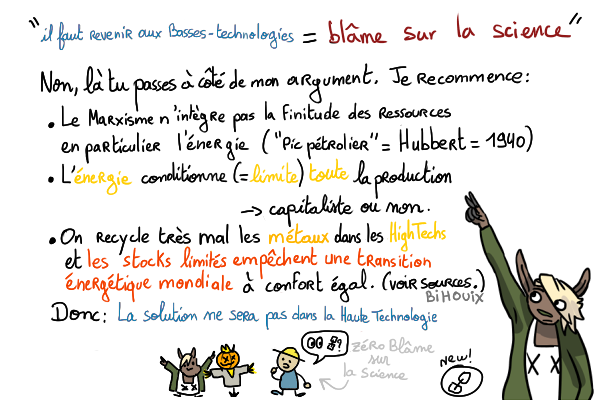 "il faut revenir aux Basses-technologies = blâme sur la science"
Non, là tu passes à côté de mon argument. Je recommence:
• Le Marxisme n'intègre pas la Finitude des Ressources
en particulier l'énergie ("Pic pétrolier" = Hubbert = 1940)
• L'énergie conditionne (= limite) toute la production
→ capitaliste ou non.
• On recycle très mal les métaux dans les HighTechs
et les stocks limités empêchent une transition
énergétique mondiale à confort égal. (voir sources.)
BiHouix
Donc: La solution ne sera pas dans la Haute Technologie
?
zéro Blâme
sur
la science
New!